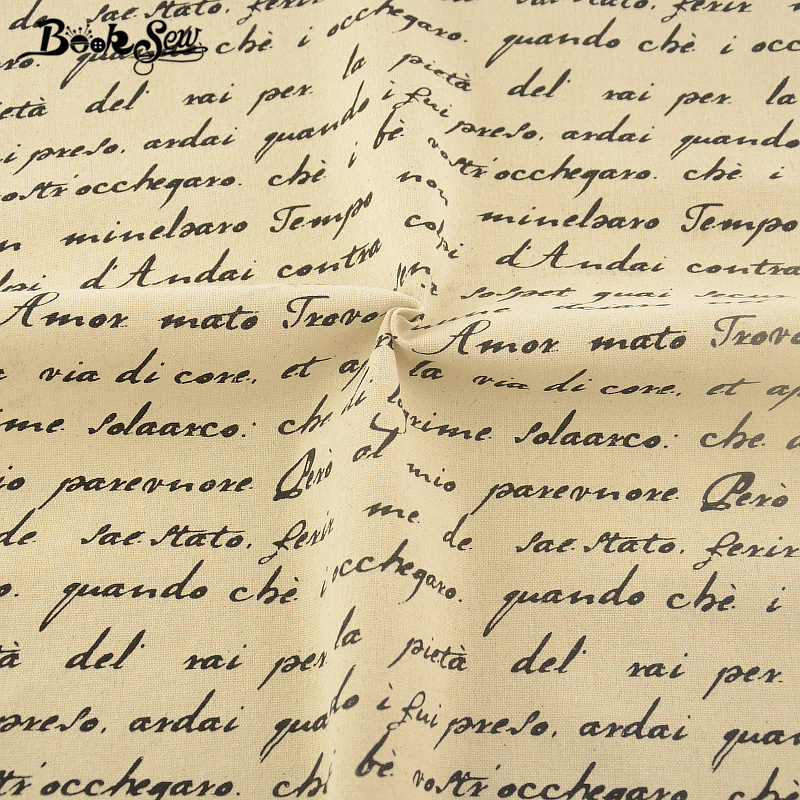 de sae stato, ferir
Book Sew
ro. quando chè i occhegaro. quando chè i occ
età del' rai per la pietà del' rai per la
i preso. ardai quando i fui preso. ardai quando
ostr'occhegaro. chè i bè vostr'occhegaro. chè i
n minelsaro Tempo non minelsaro Tempo
d'Andai contra così d'Andai contra
sospet guai secur
Amor mato Trovo Amor mato Trovo
via di core. et ap la via di core. et ap
ime solaarco: che di lagrime solaarco: che
io parevnore. Però al mio parevnore. Però
de sae stato. ferir me de sae stato. ferir
o. quando chè i occhegaro. quando chè i
à del' rai per la pietà del' rai per
preso. ardai quando i fui preso. ardai quan
tr'occhegaro. chè bè vostr'occhegaro. chè